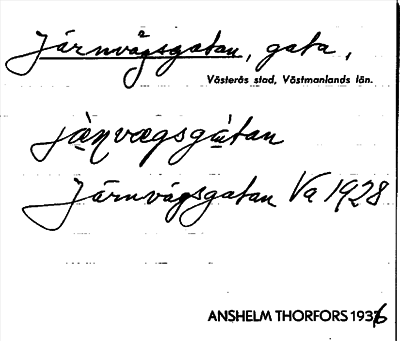 Järnvägsgatan, gata,
Västerås stad, Västmanlands län.
jä̀ṇvægsgàtan
Järnvägsgatan Va 1928
ANSHELM THORFORS 1936